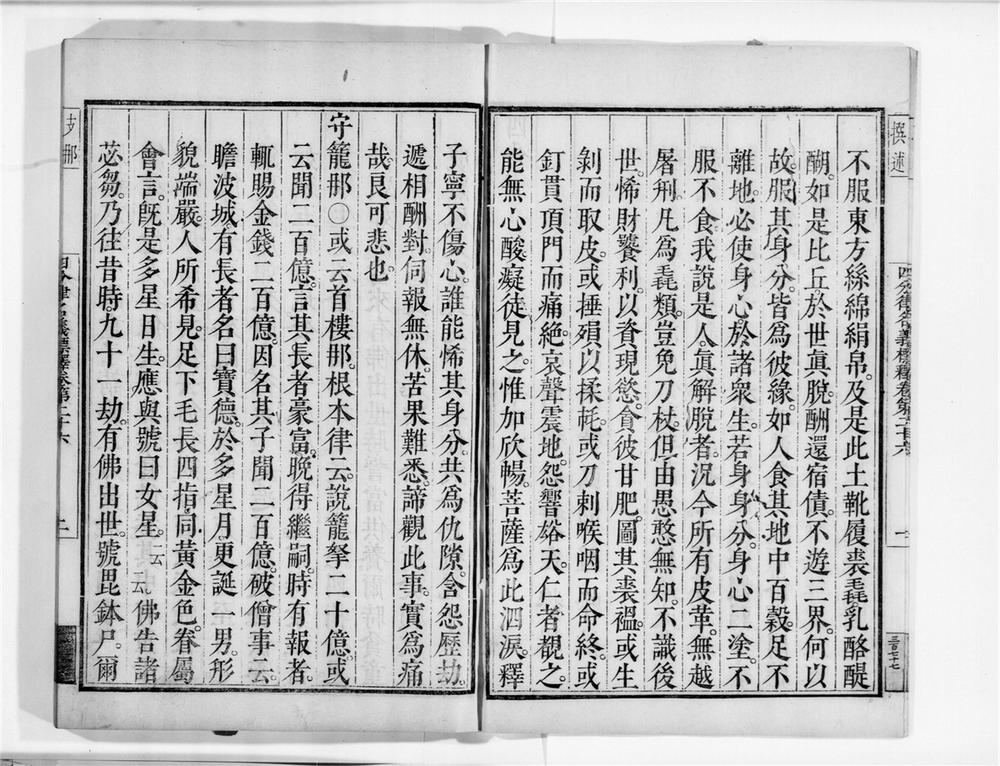 撰述
四分律名義標釋卷第二十六
一
三百七十七
不服東方絲綿絹帛。及是此土靴履裘毳乳酪醍
醐。如是比丘於世眞脫。酬還宿債。不遊三界。何以
故。服其身分。皆爲彼緣。如人食其地中百穀。足不
離地。必使身心於諸衆生。若身身分。身心二塗。不
服不食。我說是人。眞解脫者。況今所有皮革。無越
屠刑。凡爲毳類。豈免刀杖。但由愚憨無知。不識後
世。悕財饕利。以資現慾。貪彼甘肥。圖其裘褞。或生
剝而取皮。或捶殞以揉毦。或刀刺喉咽而命終。或
釘貫頂門而痛絕。哀聲震地。怨響谹天。仁者覩之。
能無心酸。癡徒見之。惟加欣暢。菩薩爲此泗淚。釋
子寧不傷心。誰能悕其身分。共爲仇隙。含怨歷劫。
遞相酬對。伺報無休。苦果難悉。諦觀此事。實爲痛
哉。良可悲也。
守籠那○或云首樓那。根本律云。說籠拏二十億。或
云聞二百億。言其長者豪富。晚得繼嗣。時有報者。
輒賜金錢二百億。因名其子聞二百億。破僧事云。
瞻波城有長者名曰寶德。於多星月。更誕一男。形
貌端嚴。人所希見。足下毛長四指。同黃金色。眷屬
會言。旣是多星日生。應與號曰女星。云云佛告諸
苾芻。乃往昔時。九十一劫。有佛出世。號毘鉢尸。爾
支那
四分律名義標釋卷第二十六
二